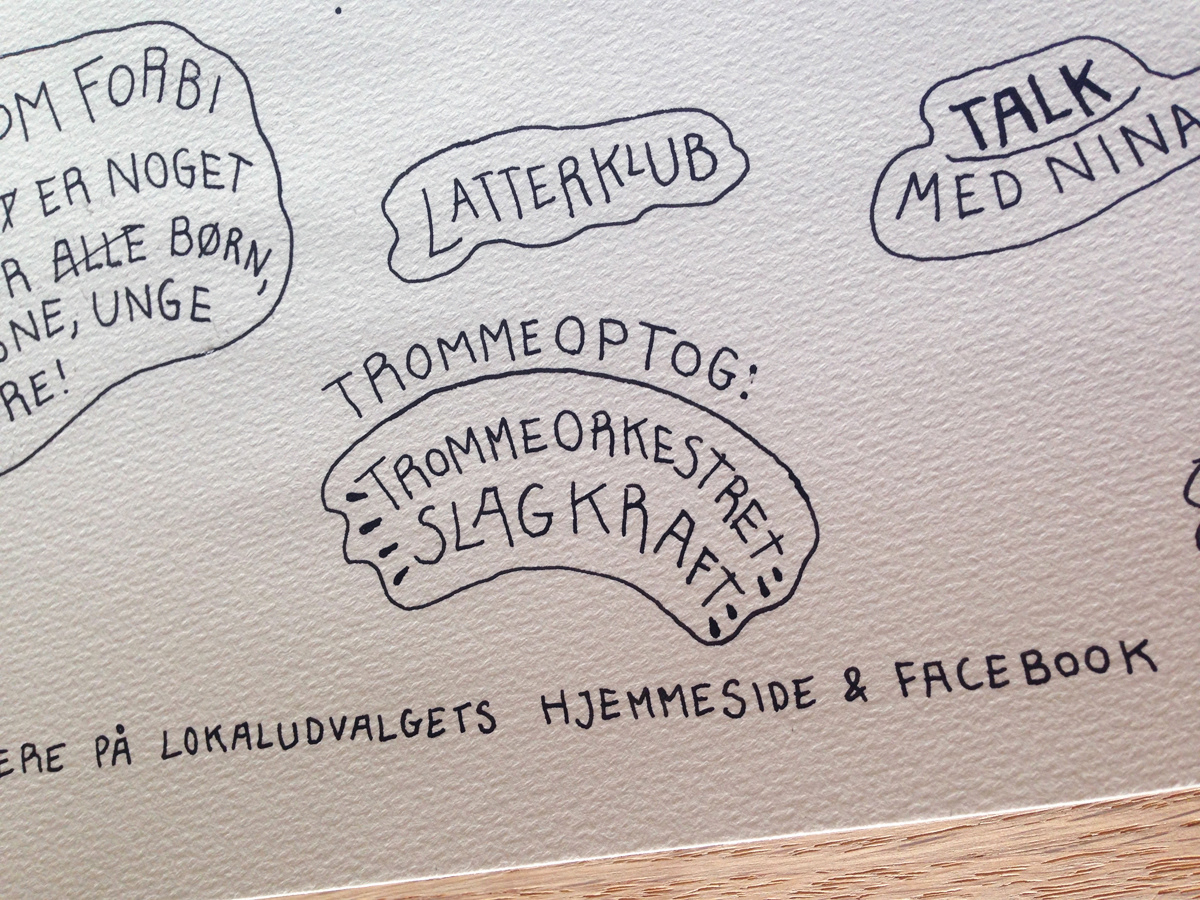 FORBI
ER NOGET
ALLE BØRN,
UNGE
LATTERKLUB
TALK
MED NINA
TROMMEOPTOG:
TROMMEORKESTRET
SLAGKRAFT
PÅ LOKALUDVALGETS HJEMMESIDE & FACEBOOK